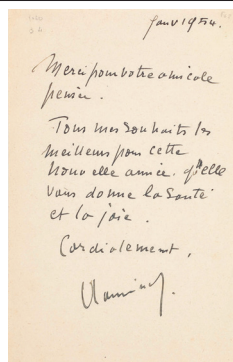 janv 1954.
Merci pour votre amicale
pensée.
Tous mes souhaits les
meilleurs pour cette
nouvelle année. qu'elle
vous donne la santé
et la joie.
Cordialement,
Vlaminck.